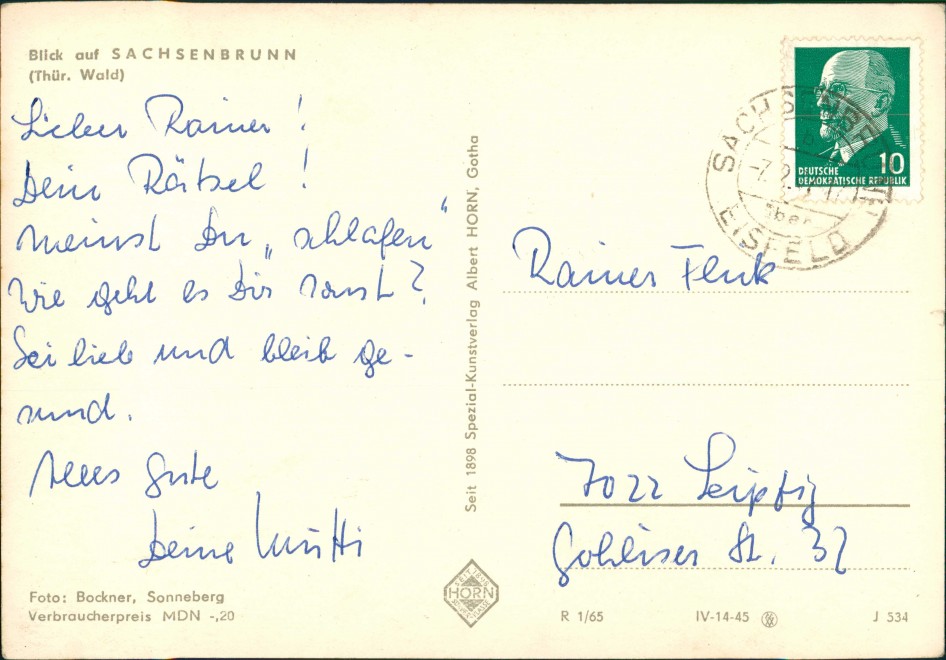 Blick auf SACHSENBRUNN
(Thür. Wald)
Lieber Rainer!
Dein Rätsel!
Meinst Du „schlafen“
Wie geht es Dir sonst?
Sei lieb und bleib ge-
sund.
Alles Gute
Deine Mutti
Foto: Bockner, Sonneberg
Verbraucherpreis MDN -,20
Seit 1898 Spezial-Kunstverlag Albert HORN, Gotha
HORN
DEUTSCHE
DEMOKRATISCHE REPUBLIK
10
über
EISFELD
Rainer Fluk
7022 Leipzig
Gohliser St. 32
R 1/65
IV-14-45
J 534